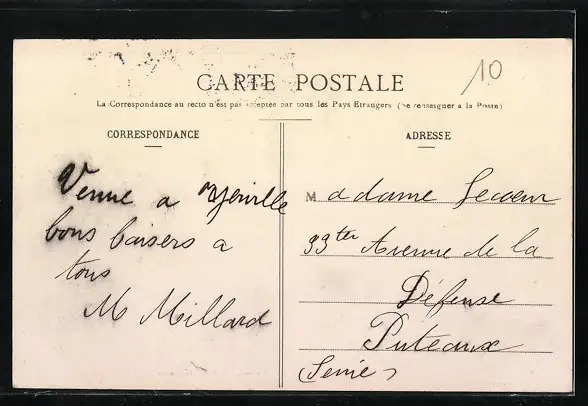 10
CARTE POSTALE
La Correspondance au recto n'est pas acceptée par tous les Pays Etrangers (Se renseigner à la Poste)
CORRESPONDANCE
ADRESSE
Venue a
bons baisers a
tous
M Millard
Madame Lecoeur
33ter Avenue de la
Défense
Puteaux
(Seine)